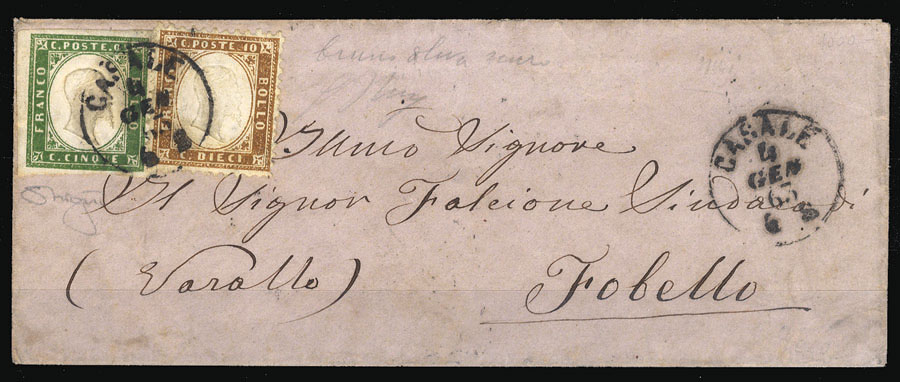 C. POSTE. C
FRANCO
C. CINQUE
C. POSTE 10
BOLLO
C. DIECI
CASALE
4
GEN
CASALE
4
GEN
63
6 S
Illmo Signore
Il Signor Falcione Sindaco di
(Varallo) Fobello